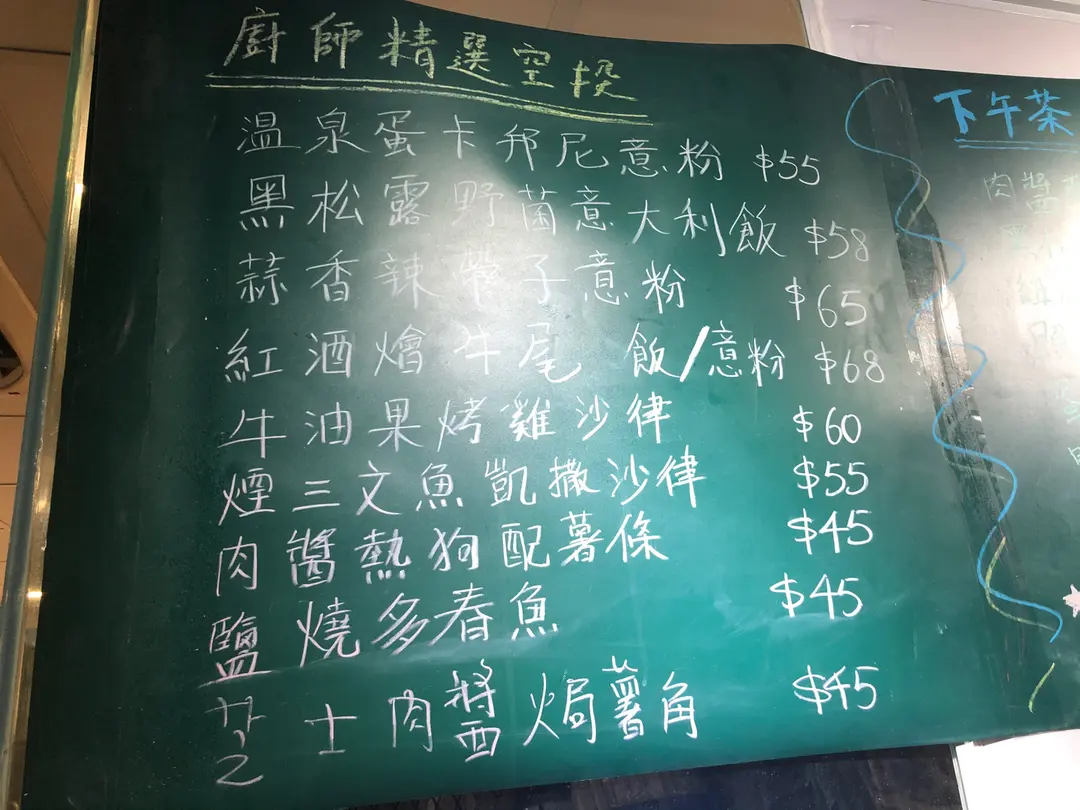 廚師精選空投
温泉蛋卡邦尼意粉 $55
黑松露野菌意大利飯 $58
蒜香辣帶子意粉 $65
紅酒燴牛尾 飯/意粉 $68
牛油果烤雞沙律 $60
煙三文魚凱撒沙律 $55
肉醬熱狗配薯條 $45
鹽燒多春魚 $45
芝士肉醬焗薯角 $45
下午茶
肉醬